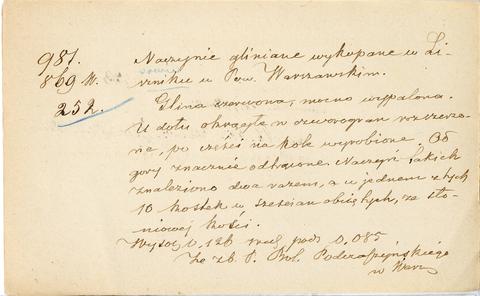 981.
869 W.
252.
Naczynie gliniane wykopane w Li-
wniku w Pow. Warszawskim.
Glina czerwona, mocno wypalona.
U dołu okrągła w czworogran rozszerzo-
na, po części na kole wyrobione. Od
góry znacznie odtrącone. Naczyń takich
znaleziono dwa razem, a w jednem z tych
10 kostek w sześcian obciętych, ze sło-
niowej kości.
Wysoć. 0.126 śred. pods. 0.085
Ze zb. P. Bol. Podczaszyńskiego
w Warsz.